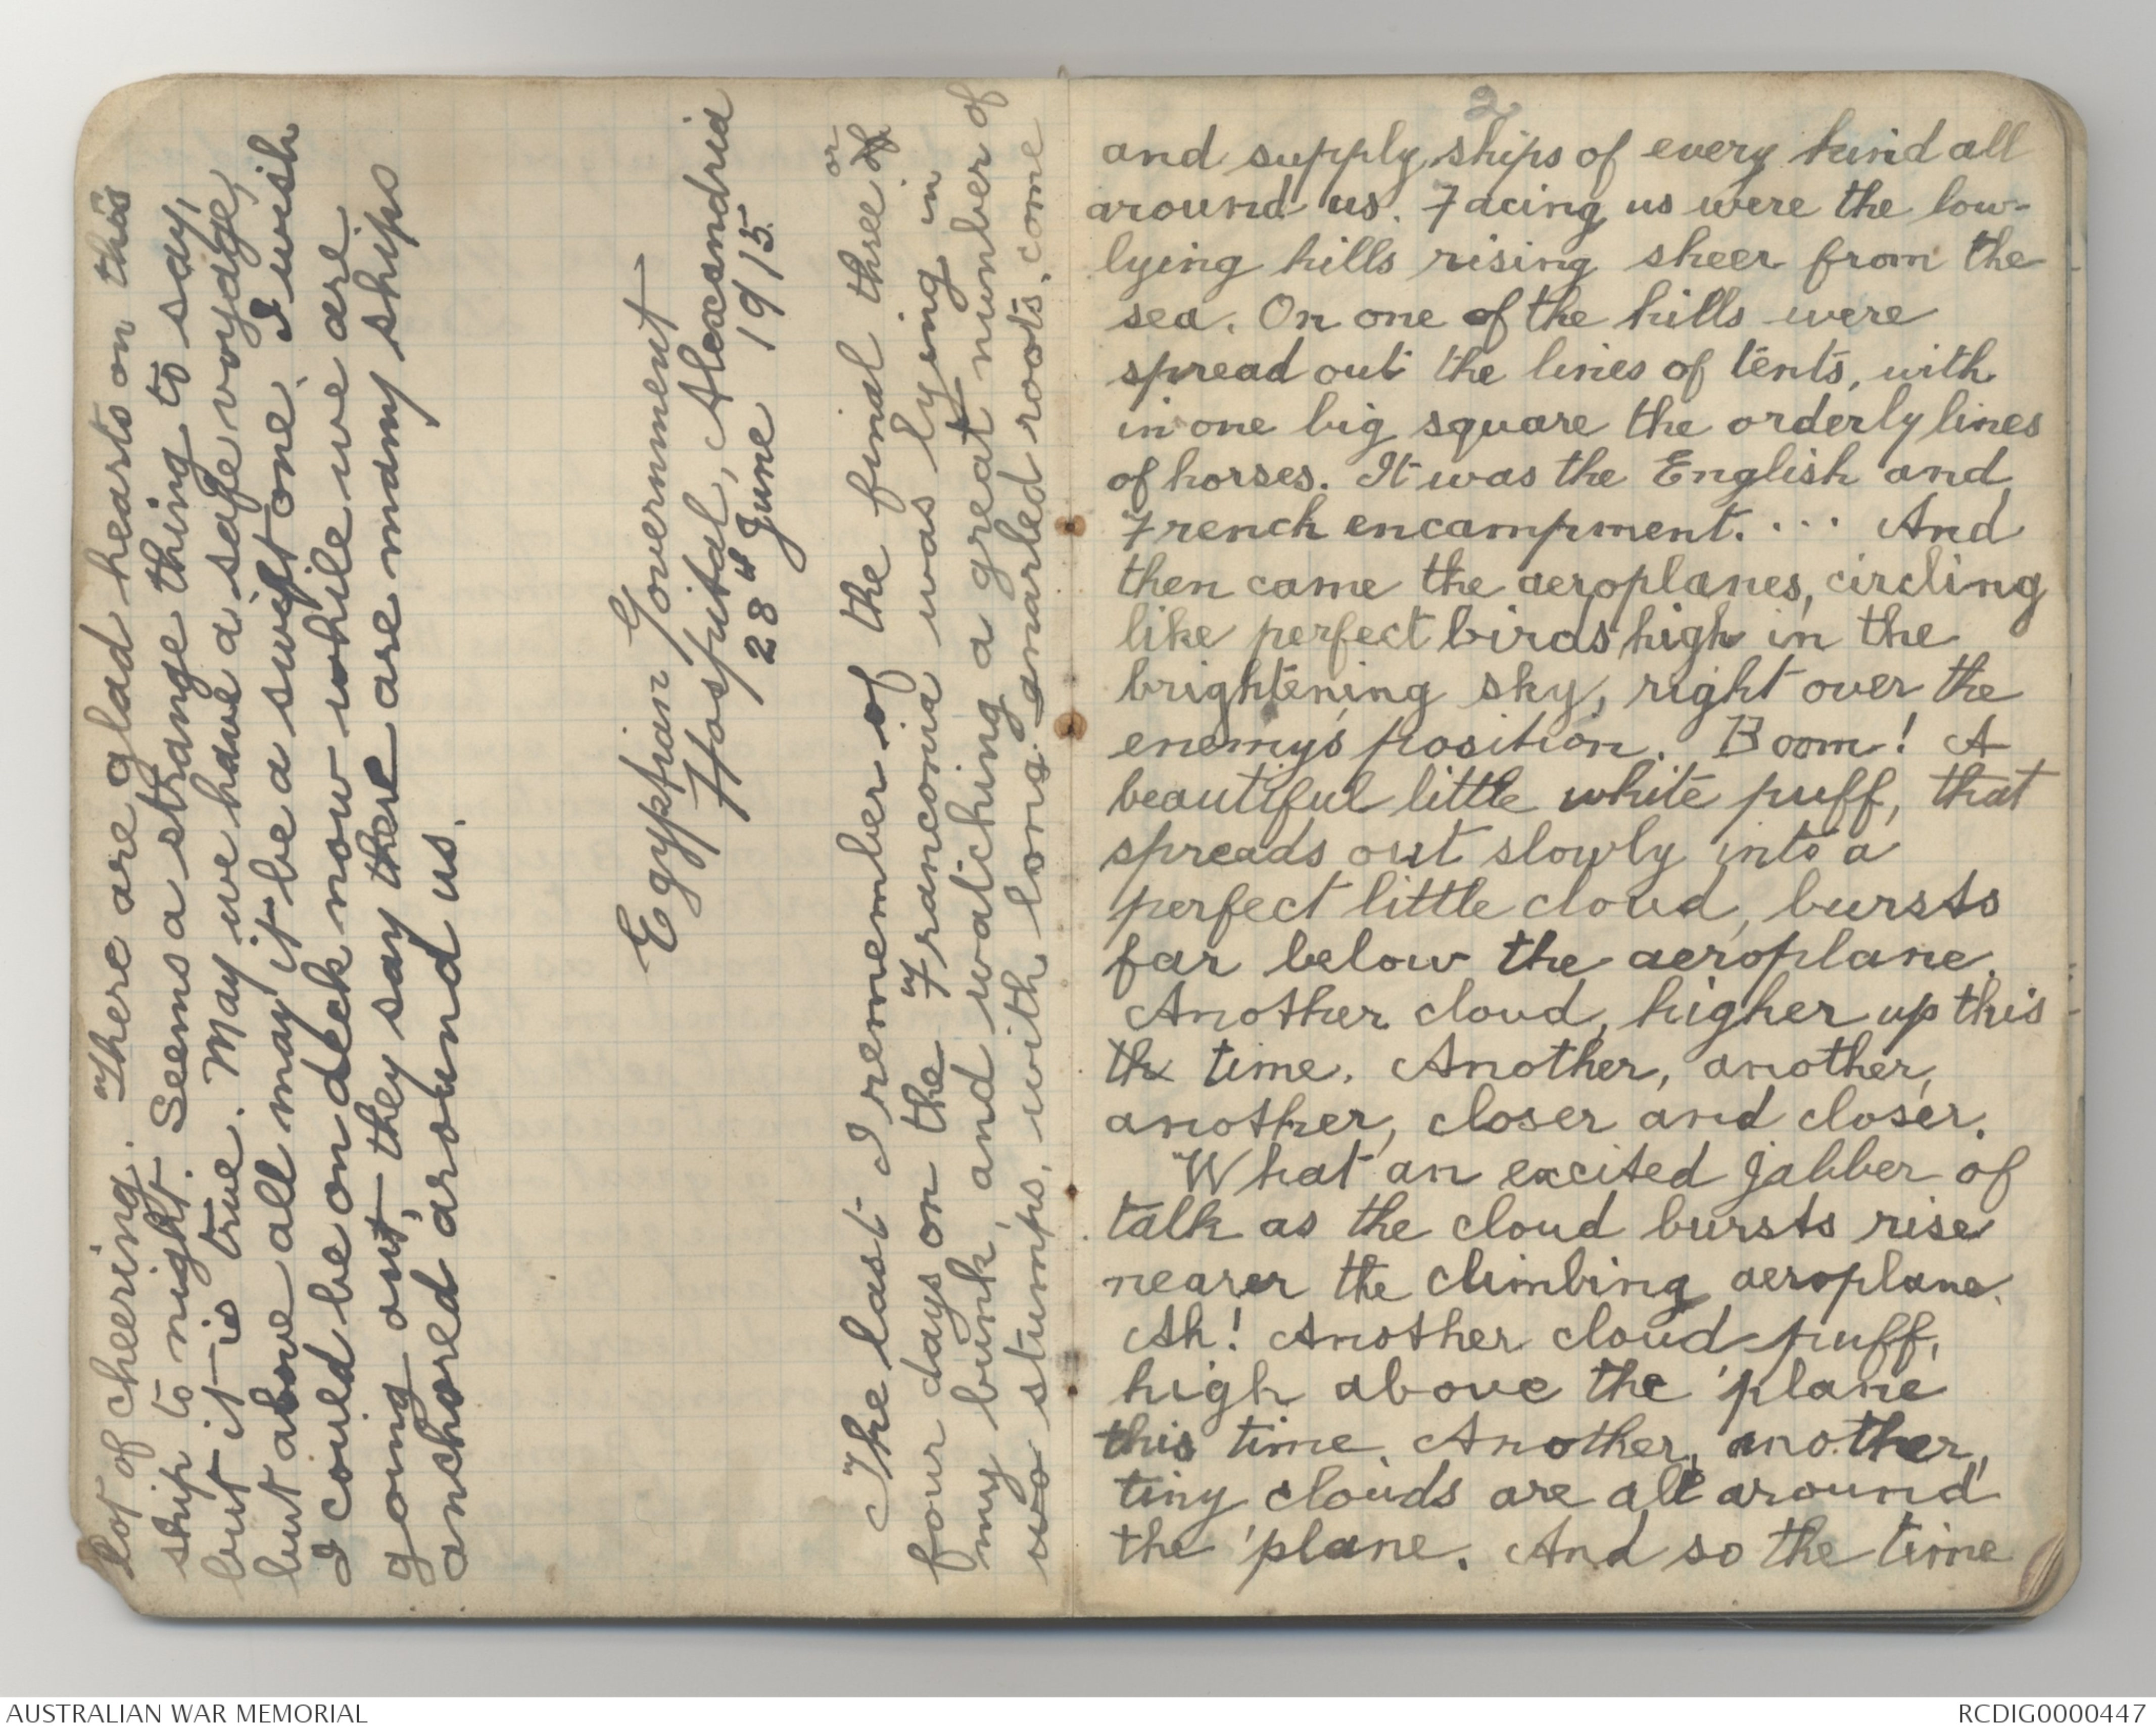 lot of cheering. There are glad hearts on this
ship to night. Seems a strange thing to say,
but it is true. May we have a safe voyage,
but above all may it be a swift one. I wish
I could be on deck now while we are
going out, they say there are many ships
anchored around us.
Egyptian Government
Hospital, Alexandria
28th June 1915.
The last I remember of the final three or of
four days on the Franconia was lying in
my bunk, and watching a great number of
wo stumps, with long gnarled roots, come
2
and supply ships of every kind all
around us. Facing us were the low-
lying hills rising sheer from the
sea. On one of the hills were
spread out the lines of tents, with
in one big square the orderly lines
of horses. It was the English and
French encampment. ... And
then came the aeroplanes, circling
like perfect birds high in the
brightening sky, right over the
enemy's position. Boom! A
beautiful little white puff, that
spreads out slowly into a
perfect little cloud, bursts
far below the aeroplane.
Another cloud, higher up this
th time. Another, another,
another, closer and closer.
What an excited jabber of
talk as the cloud bursts rise
nearer the climbing aeroplane.
Ah! Another cloud puff,
high above the 'plane
this time. Another, another,
tiny clouds are all around
the 'plane. And so the time
AUSTRALIAN WAR MEMORIAL
RCDIG0000447